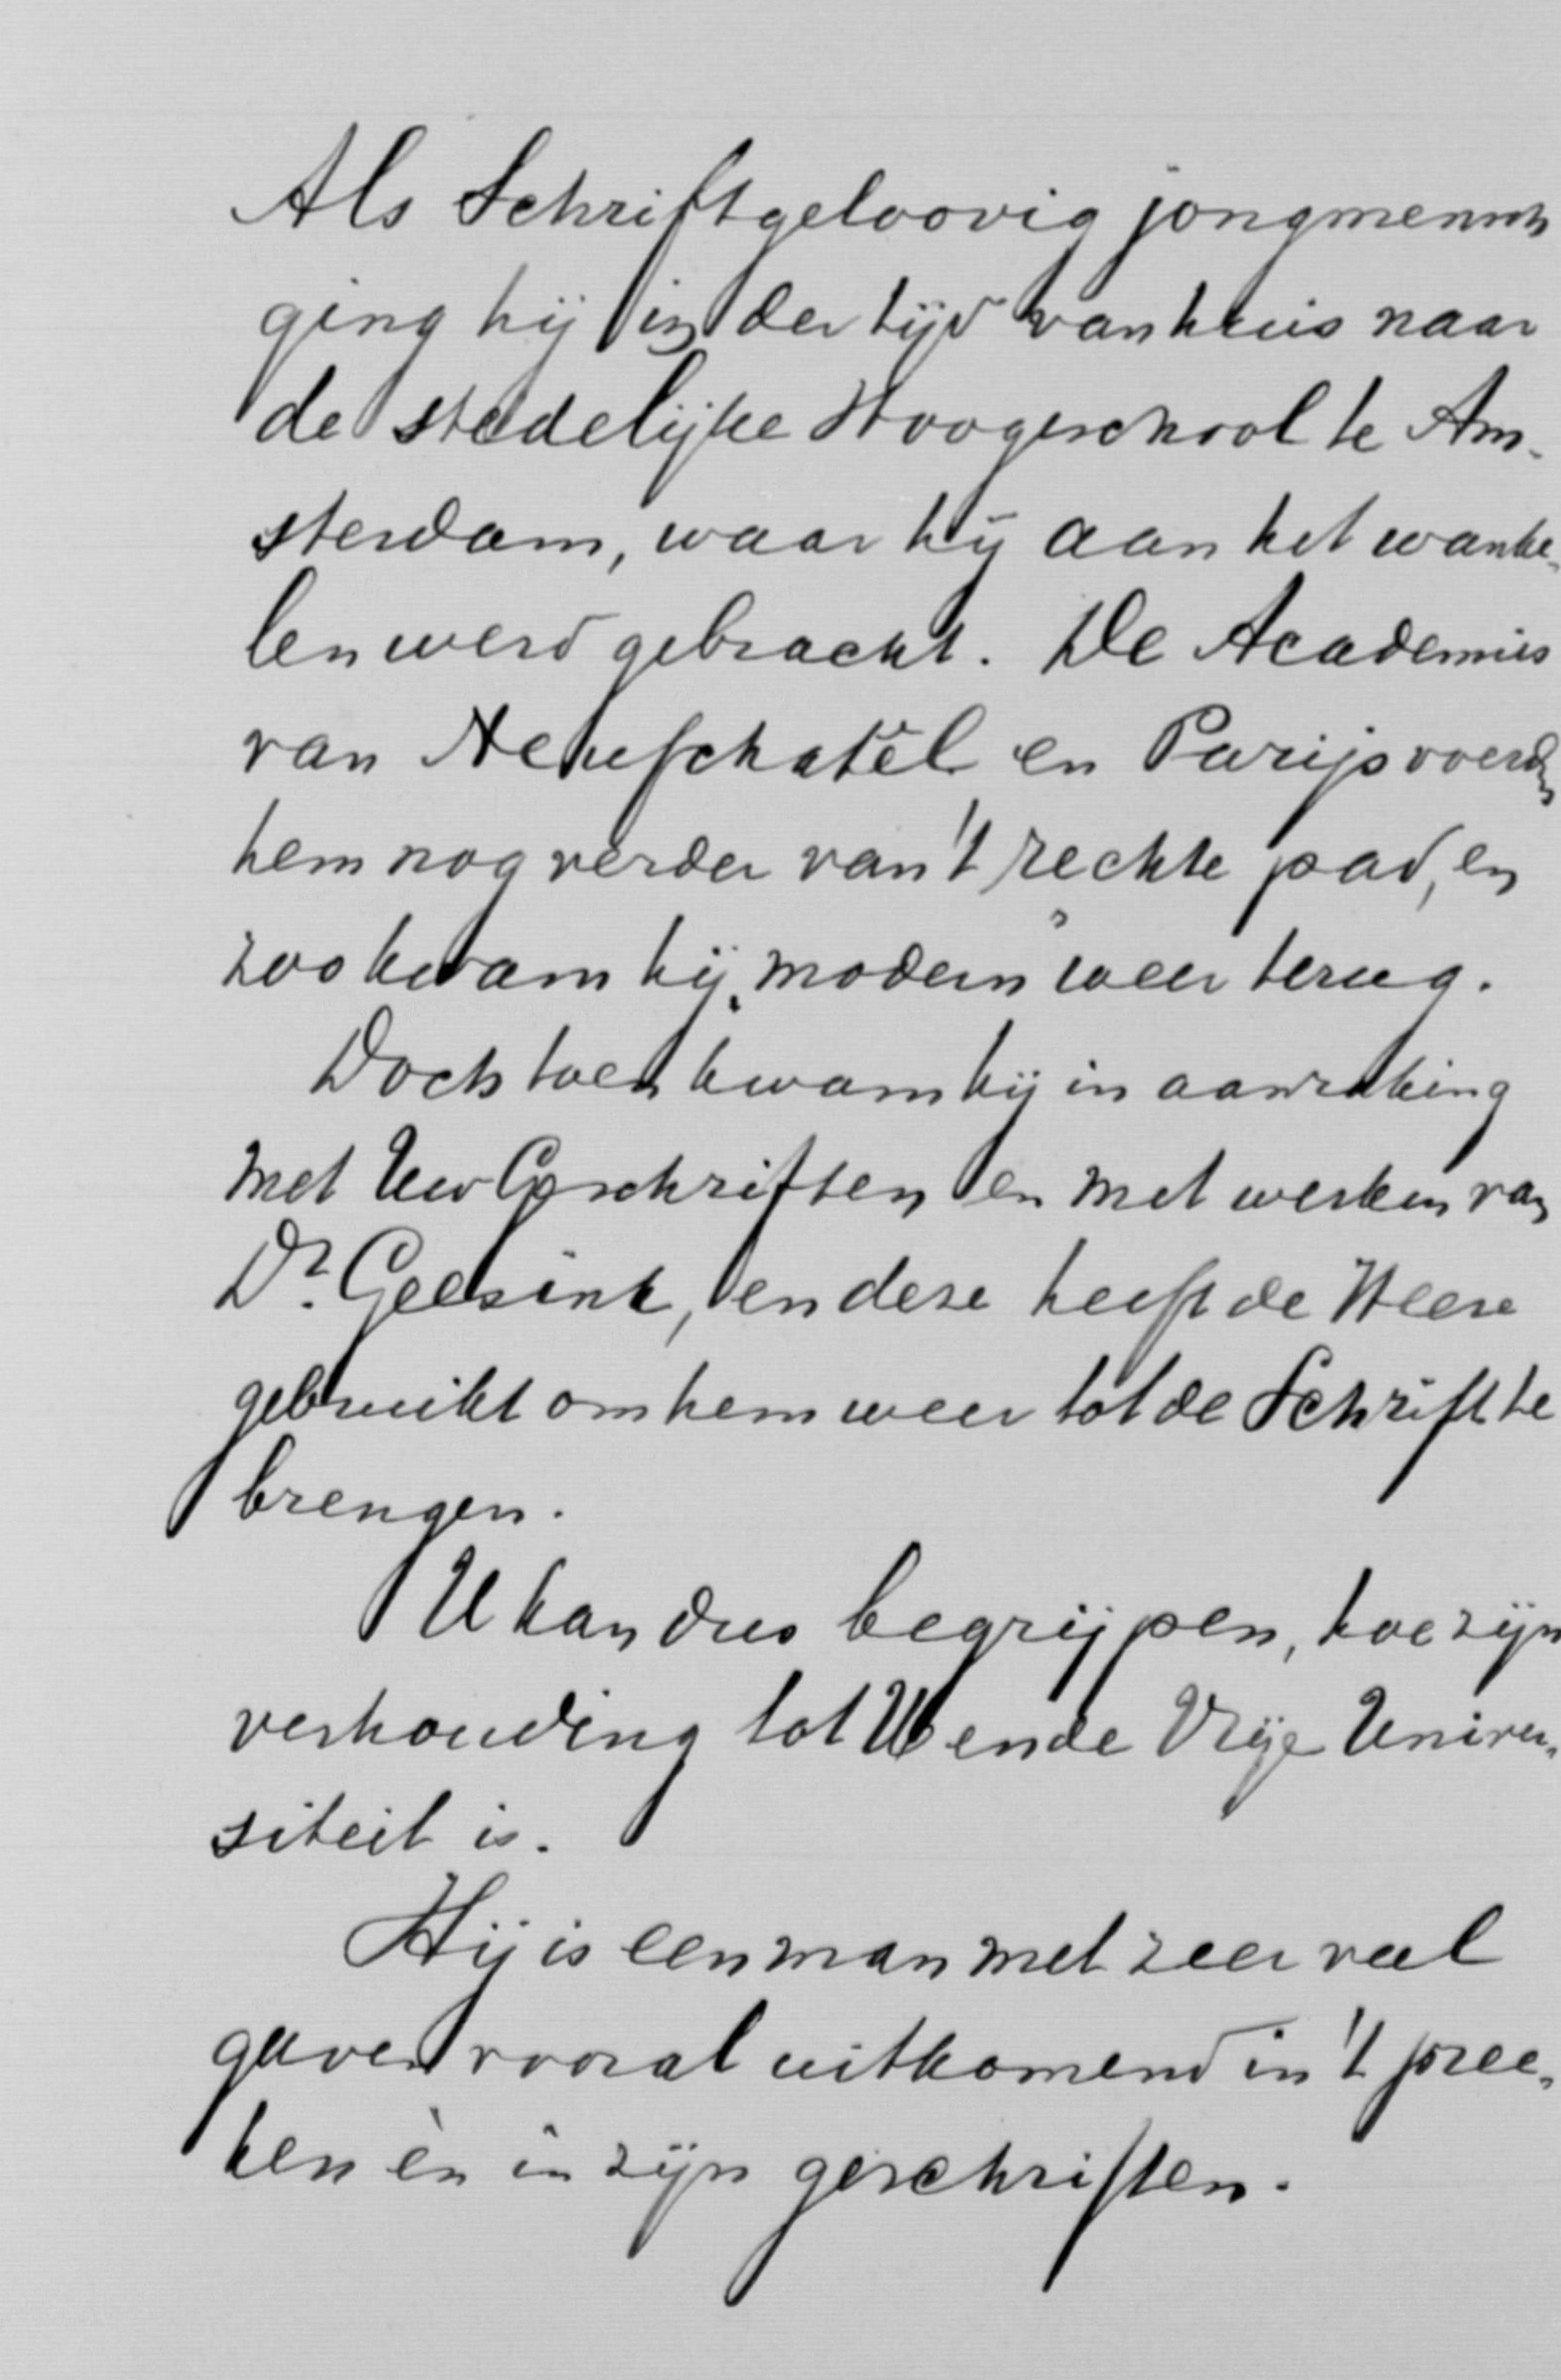 Als Schriftgeloovig jongmensch
ging hij in der tijd van huis naar
de stedelijke Hoogeschool te Am-
sterdam, waar hij aan het wanke-
len werd gebracht. De Academies
van Neufschatêl en Parijs voerden
hem nog verder van 't rechte pad, en
zoo kwam hij „modern" weer terug.
Doch toen kwam hij in aanraking
met Uw Geschriften en met werken van
Dr. Geesink, en deze heeft de Heere
gebruikt om hem weer tot de Schrift te
brengen.
U kan dus begrijpen, hoe zijn
verhouding tot U en de Vrije Univer-
siteit is.
Hij is een man met zeer veel
gaven vooral uitkomend in 't pree-
ken èn in zijn geschriften.